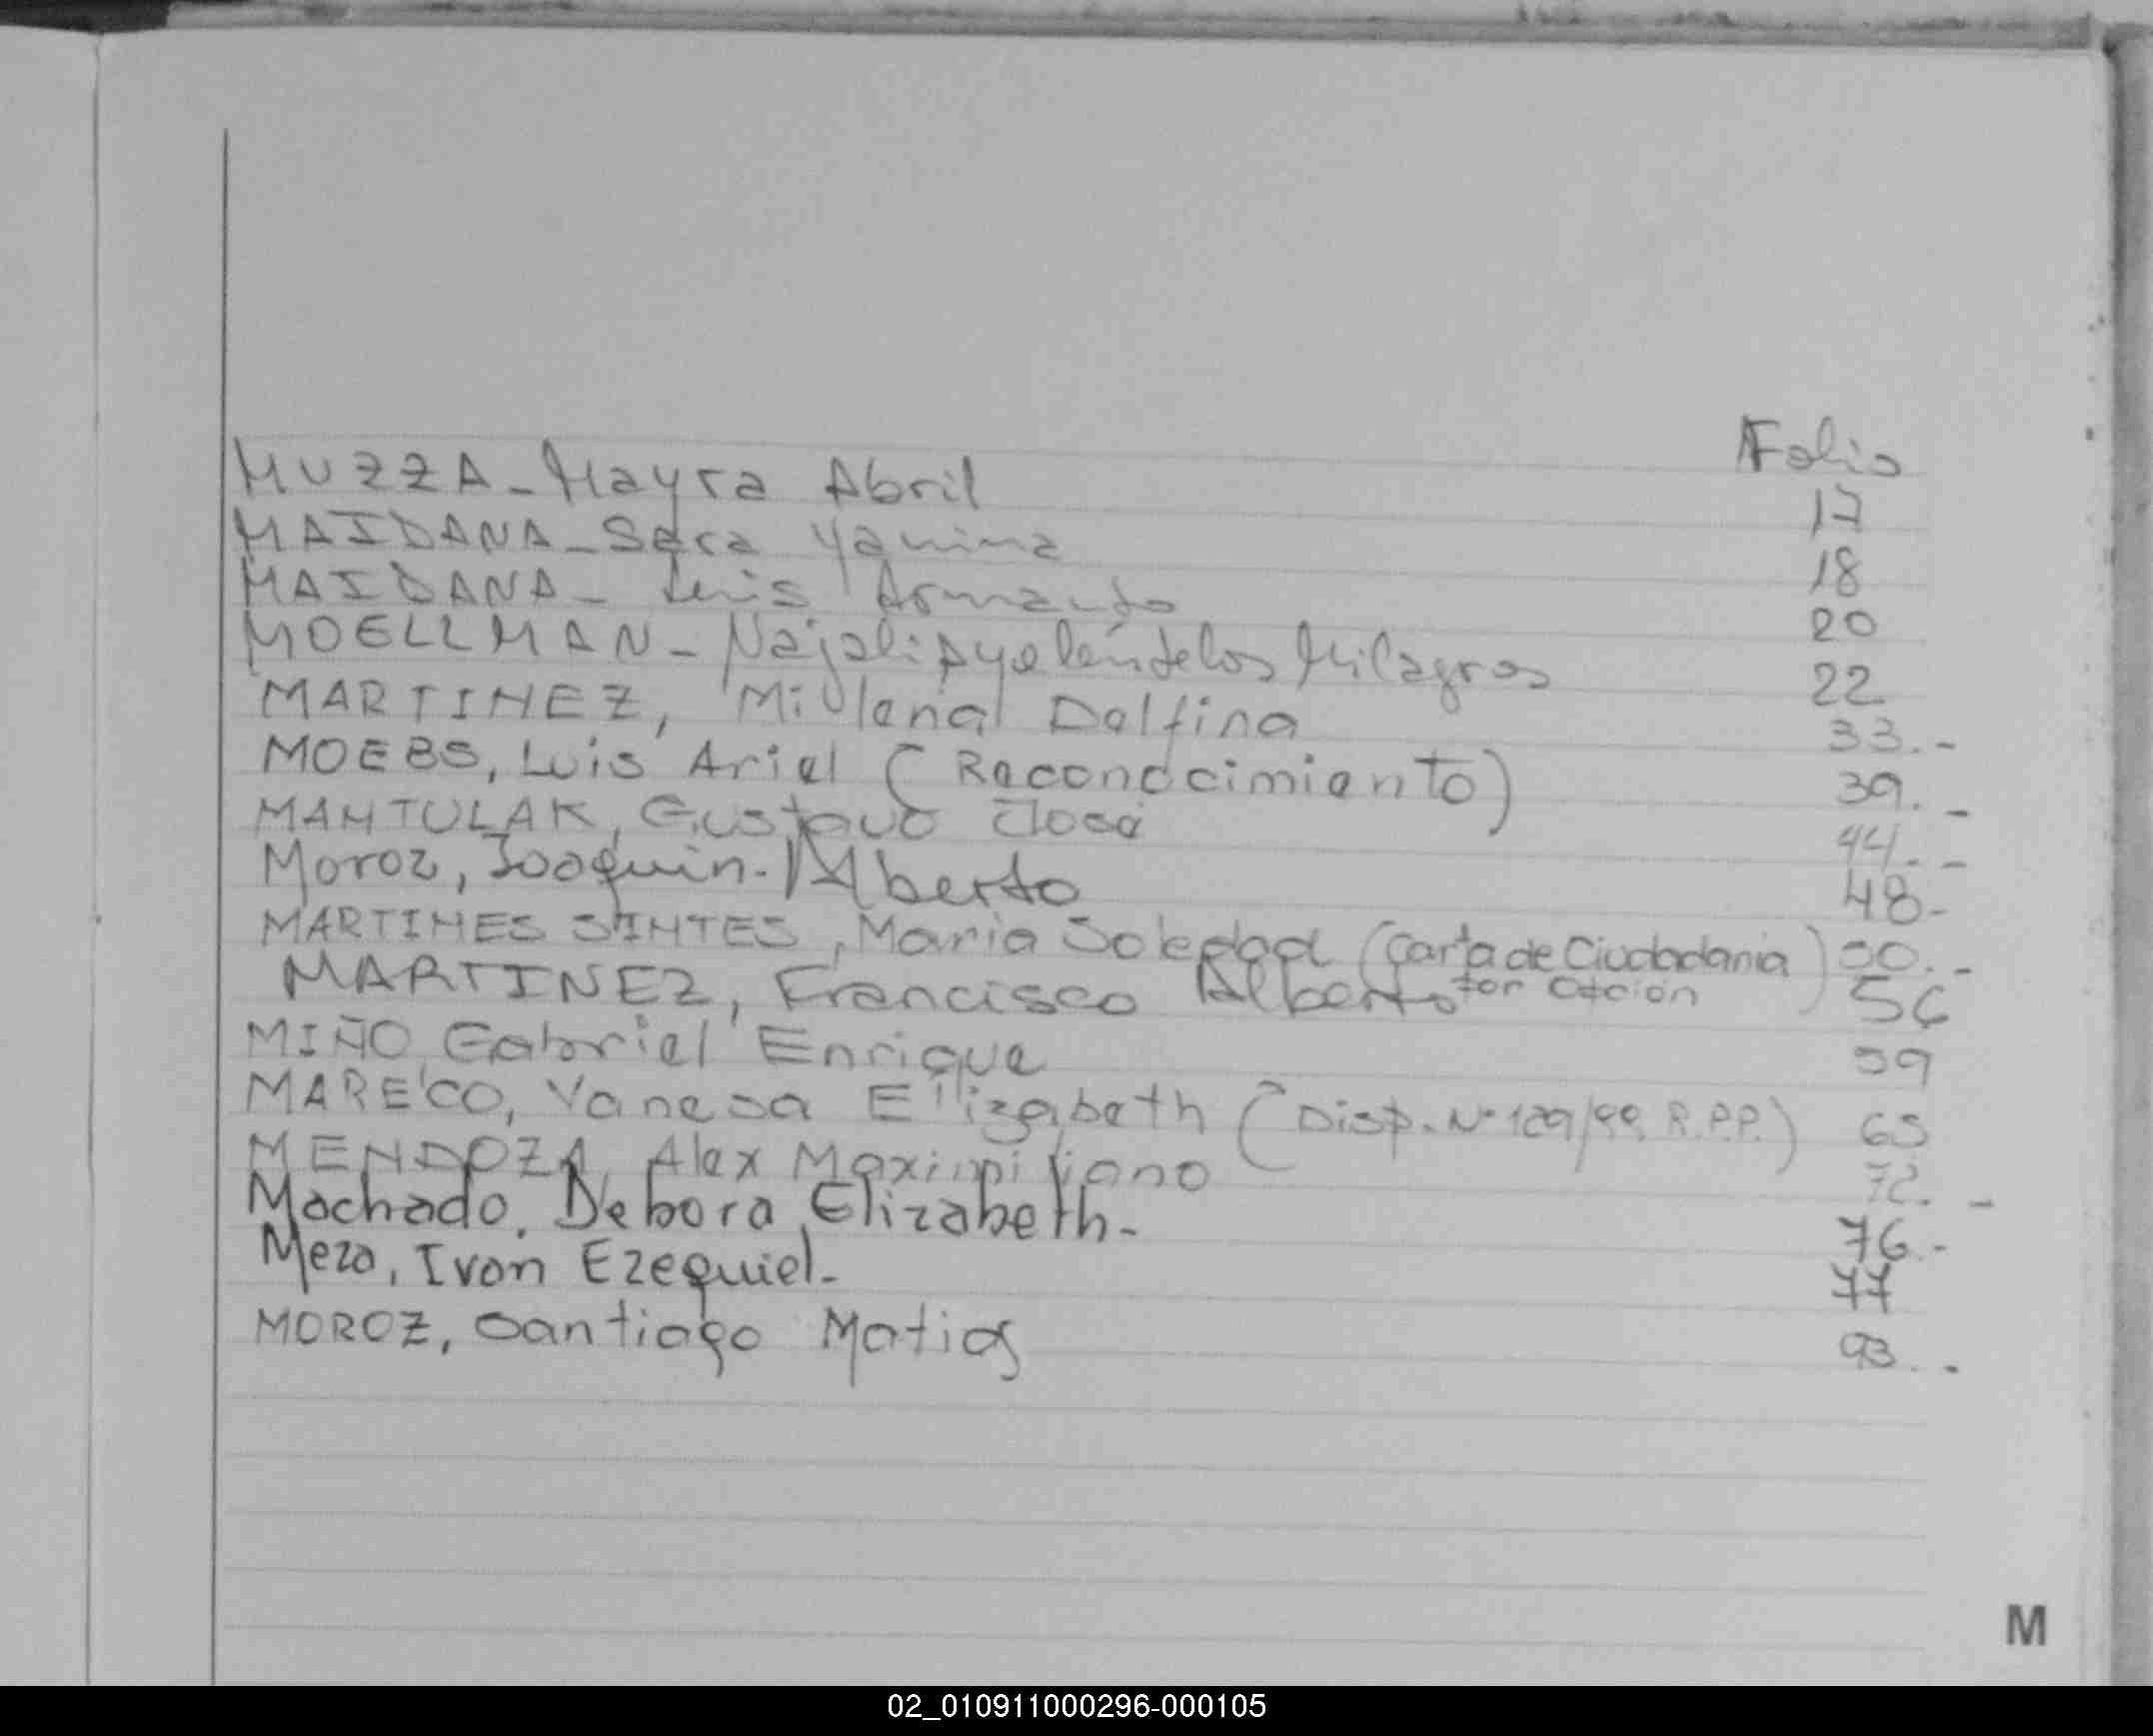 Folio
MUZZA - Mayra Abril 17
MAIDANA - Sara Yanina 18
MAIDANA - Luis Armando 20
MOELLMAN - Najali Ayelén de los Milagros 22
MARTINEZ, Millenal Delfina 33.-
MOEBS, Luis Ariel (Reconocimiento) 39.-
MANTULAK, Gustavo José 44.-
Moroz, Joaquin. Alberto 48-
MARTINES SINTES, Maria Soledad (Carta de Ciudadania) 50.-
MARTINEZ, Francisco Alberto Por Opción 56
MIÑO, Gabriel Enrique 59
MARECO, Vanesa Elizabeth (Disp. Nº 129/99 R.P.P.) 65
MENDOZA, Alex Maximiliano 72.-
Machado, Debora Elizabeth- 76.-
Meza, Ivan Ezequiel- 77
MOROZ, Santiago Matias 93.-
M
02_010911000296-000105